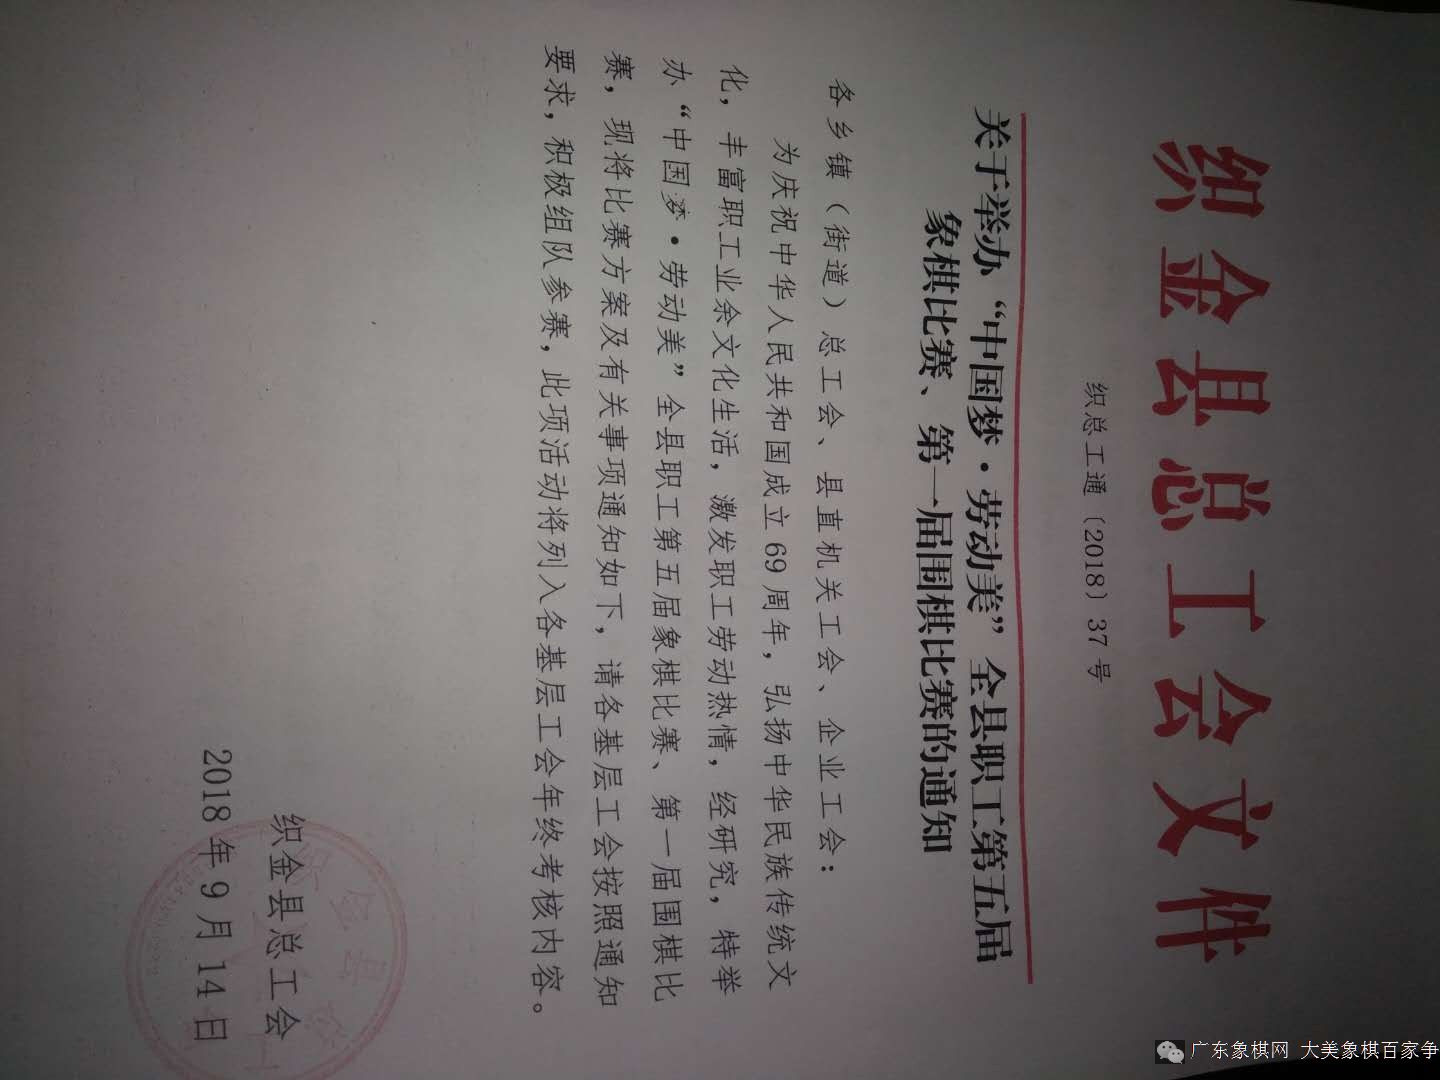 织金县总工会文件
织总工通〔2018〕37号
关于举办“中国梦·劳动美”全县职工第五届
象棋比赛、第一届围棋比赛的通知
各乡镇（街道）总工会、县直机关工会、企业工会：
为庆祝中华人民共和国成立69周年，弘扬中华民族传统文
化，丰富职工业余文化生活，激发职工劳动热情，经研究，特举
办“中国梦·劳动美”全县职工第五届象棋比赛、第一届围棋比
赛，现将比赛方案及有关事项通知如下，请各基层工会按照通知
要求，积极组队参赛，此项活动将列入各基层工会年终考核内容。
织金县总工会
2018年9月14日
广东象棋网 大美象棋百家争